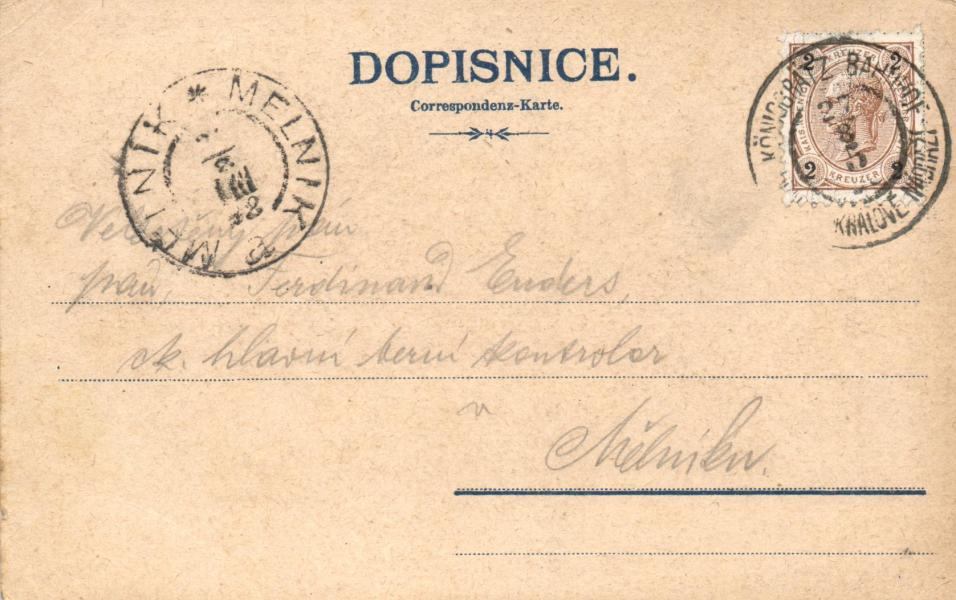 DOPISNICE.
Correspondenz-Karte.
MELNIK * MĚLNÍK
KÖNIGGRATZ BAHNHOF KRÁLOVÉ
2 KREUZER 2
2 KREUZER 2
pán
pan, Ferdinand Enders,
ck. hlavní berní kontrolor
v
Mělníku.